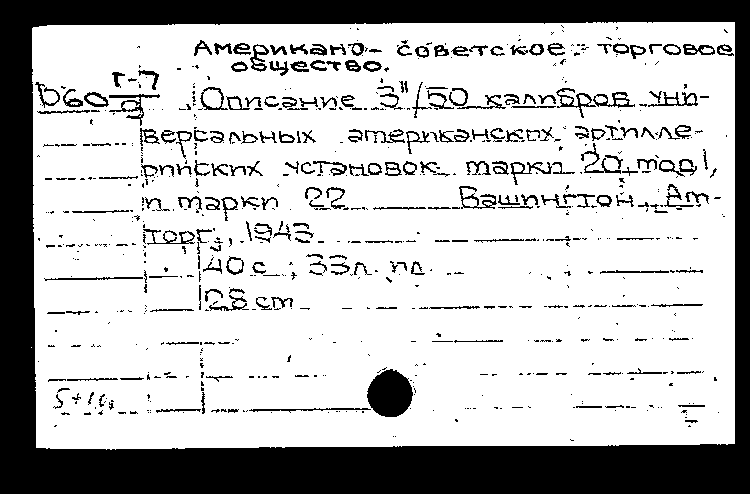 Американо- советское - торговое
общество.
D60 Г-7/9 Описание 3"/50 калибров уни-
версальных американских артилле-
рийских установок марки 20, мод 1,
и марки 22 Вашингтон, Ам-
торг, 1943
40 с ; 33 л. пл
28 cm